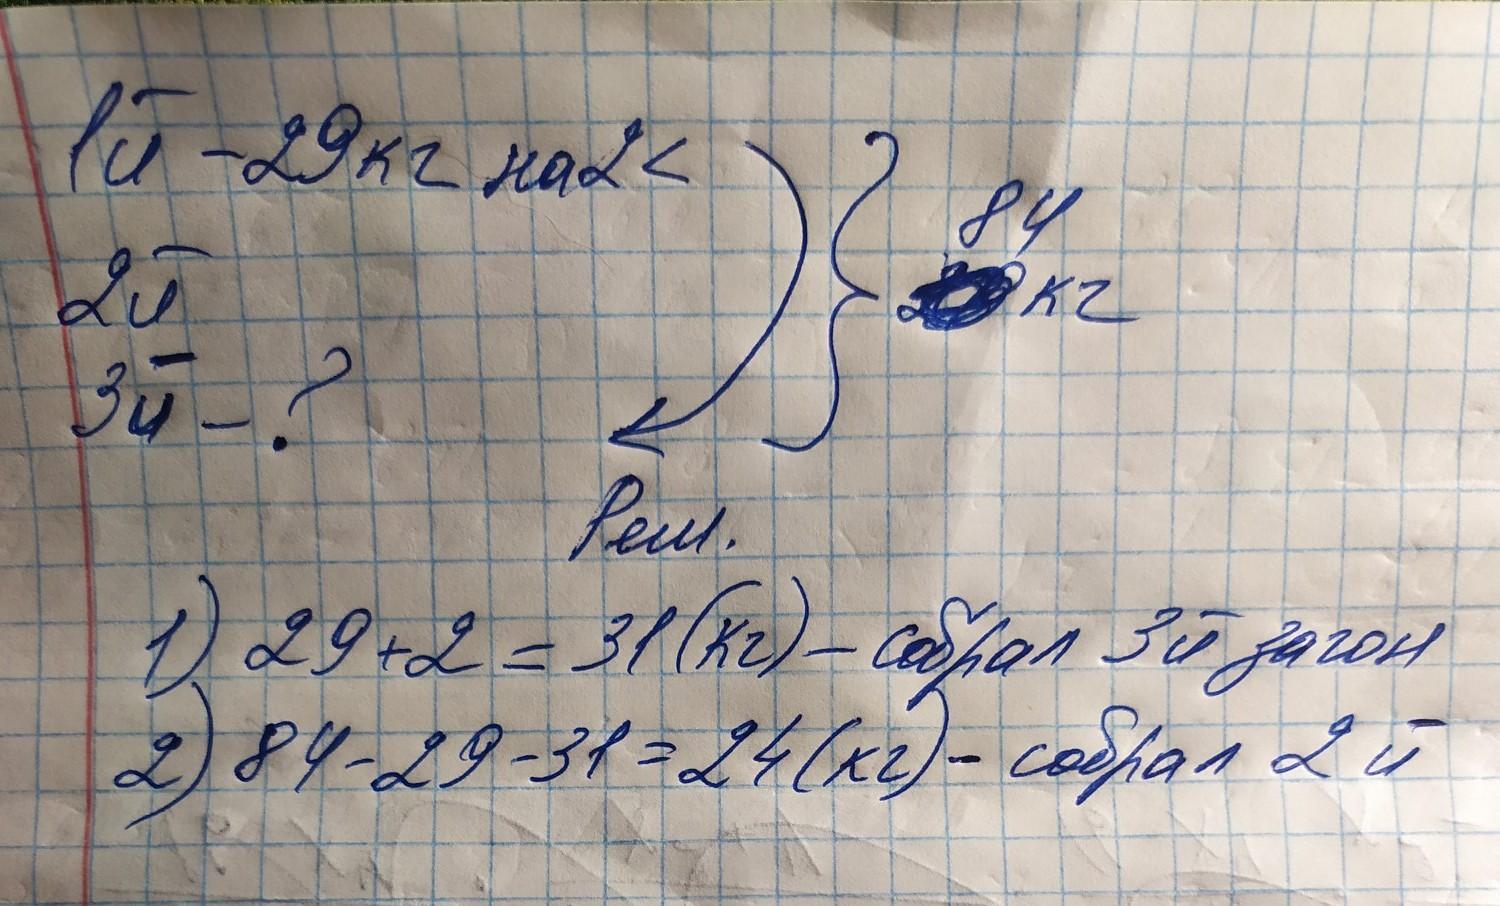 1й - 29кг на 2 <
84
2й
кг
3й - ?
Реш.
1) 29 + 2 = 31 (кг) - собрал 3й загон
2) 84 - 29 - 31 = 24 (кг) - собрал 2й